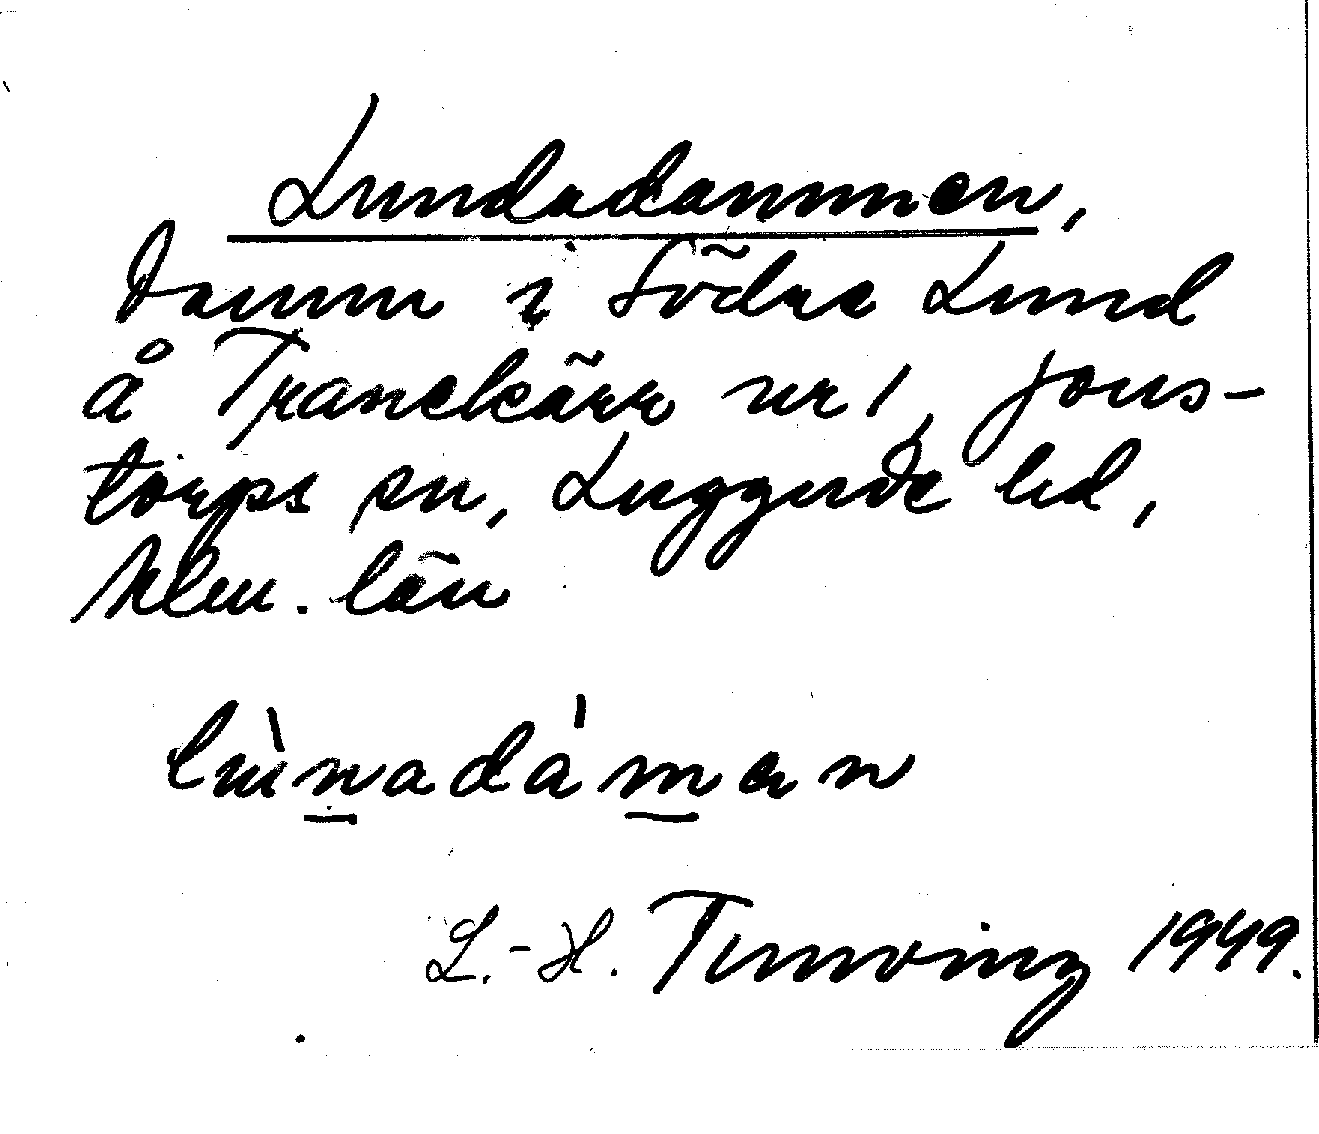 Lundadammen,
Damm i Södra Lund
å Tranekärr nr 1, Jons-
torps sn, Luggude hd,
Mlm. län
lùnadáman
L.-H. Tunving 1949.